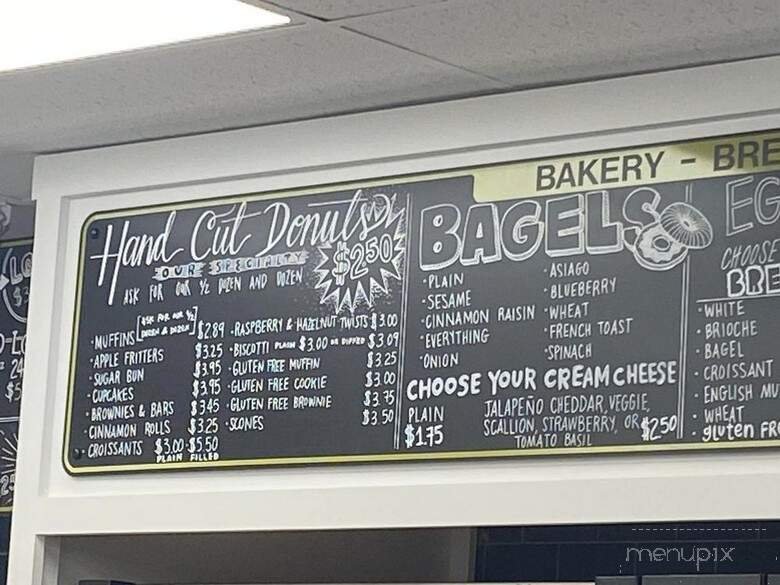 BAKERY - BRE
Hand Cut Donuts
OUR SPECIALTY
ASK FOR OUR ½ DOZEN AND DOZEN
$2.50
·MUFFINS [ASK FOR OUR ½ DOZEN & DOZEN] $2.89
·APPLE FRITTERS $3.25
·SUGAR BUN $3.95
·CUPCAKES $3.95
·BROWNIES & BARS $3.45
·CINNAMON ROLLS $3.25
·CROISSANTS $3.00 $5.50
PLAIN FILLED
·RASPBERRY & HAZELNUT TWISTS $3.00
·BISCOTTI PLAIN $3.00 OR DIPPED $3.09
·GLUTEN FREE MUFFIN $3.25
·GLUTEN FREE COOKIE $3.00
·GLUTEN FREE BROWNIE $3.75
·SCONES $3.50
BAGELS
·PLAIN
·SESAME
·CINNAMON RAISIN
·EVERYTHING
·ONION
·ASIAGO
·BLUEBERRY
·WHEAT
·FRENCH TOAST
·SPINACH
CHOOSE YOUR CREAM CHEESE
PLAIN
$1.75
JALAPEÑO CHEDDAR, VEGGIE,
SCALLION, STRAWBERRY, OR
TOMATO BASIL
$2.50
EG
CHOOSE
BRE
·WHITE
·BRIOCHE
·BAGEL
·CROISSANT
·ENGLISH MU
·WHEAT
·gluten FR
menupix